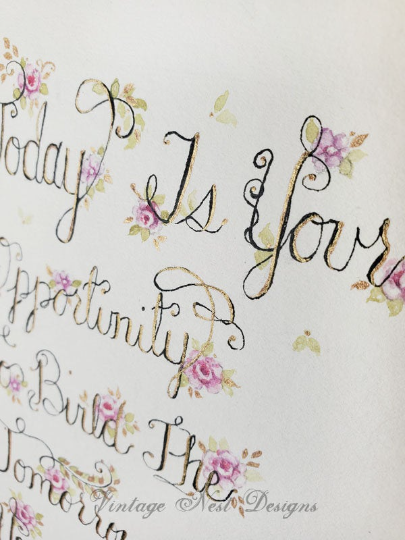 Today Is Your
Opportunity
Build The
Tomorro
Vintage Nest Designs